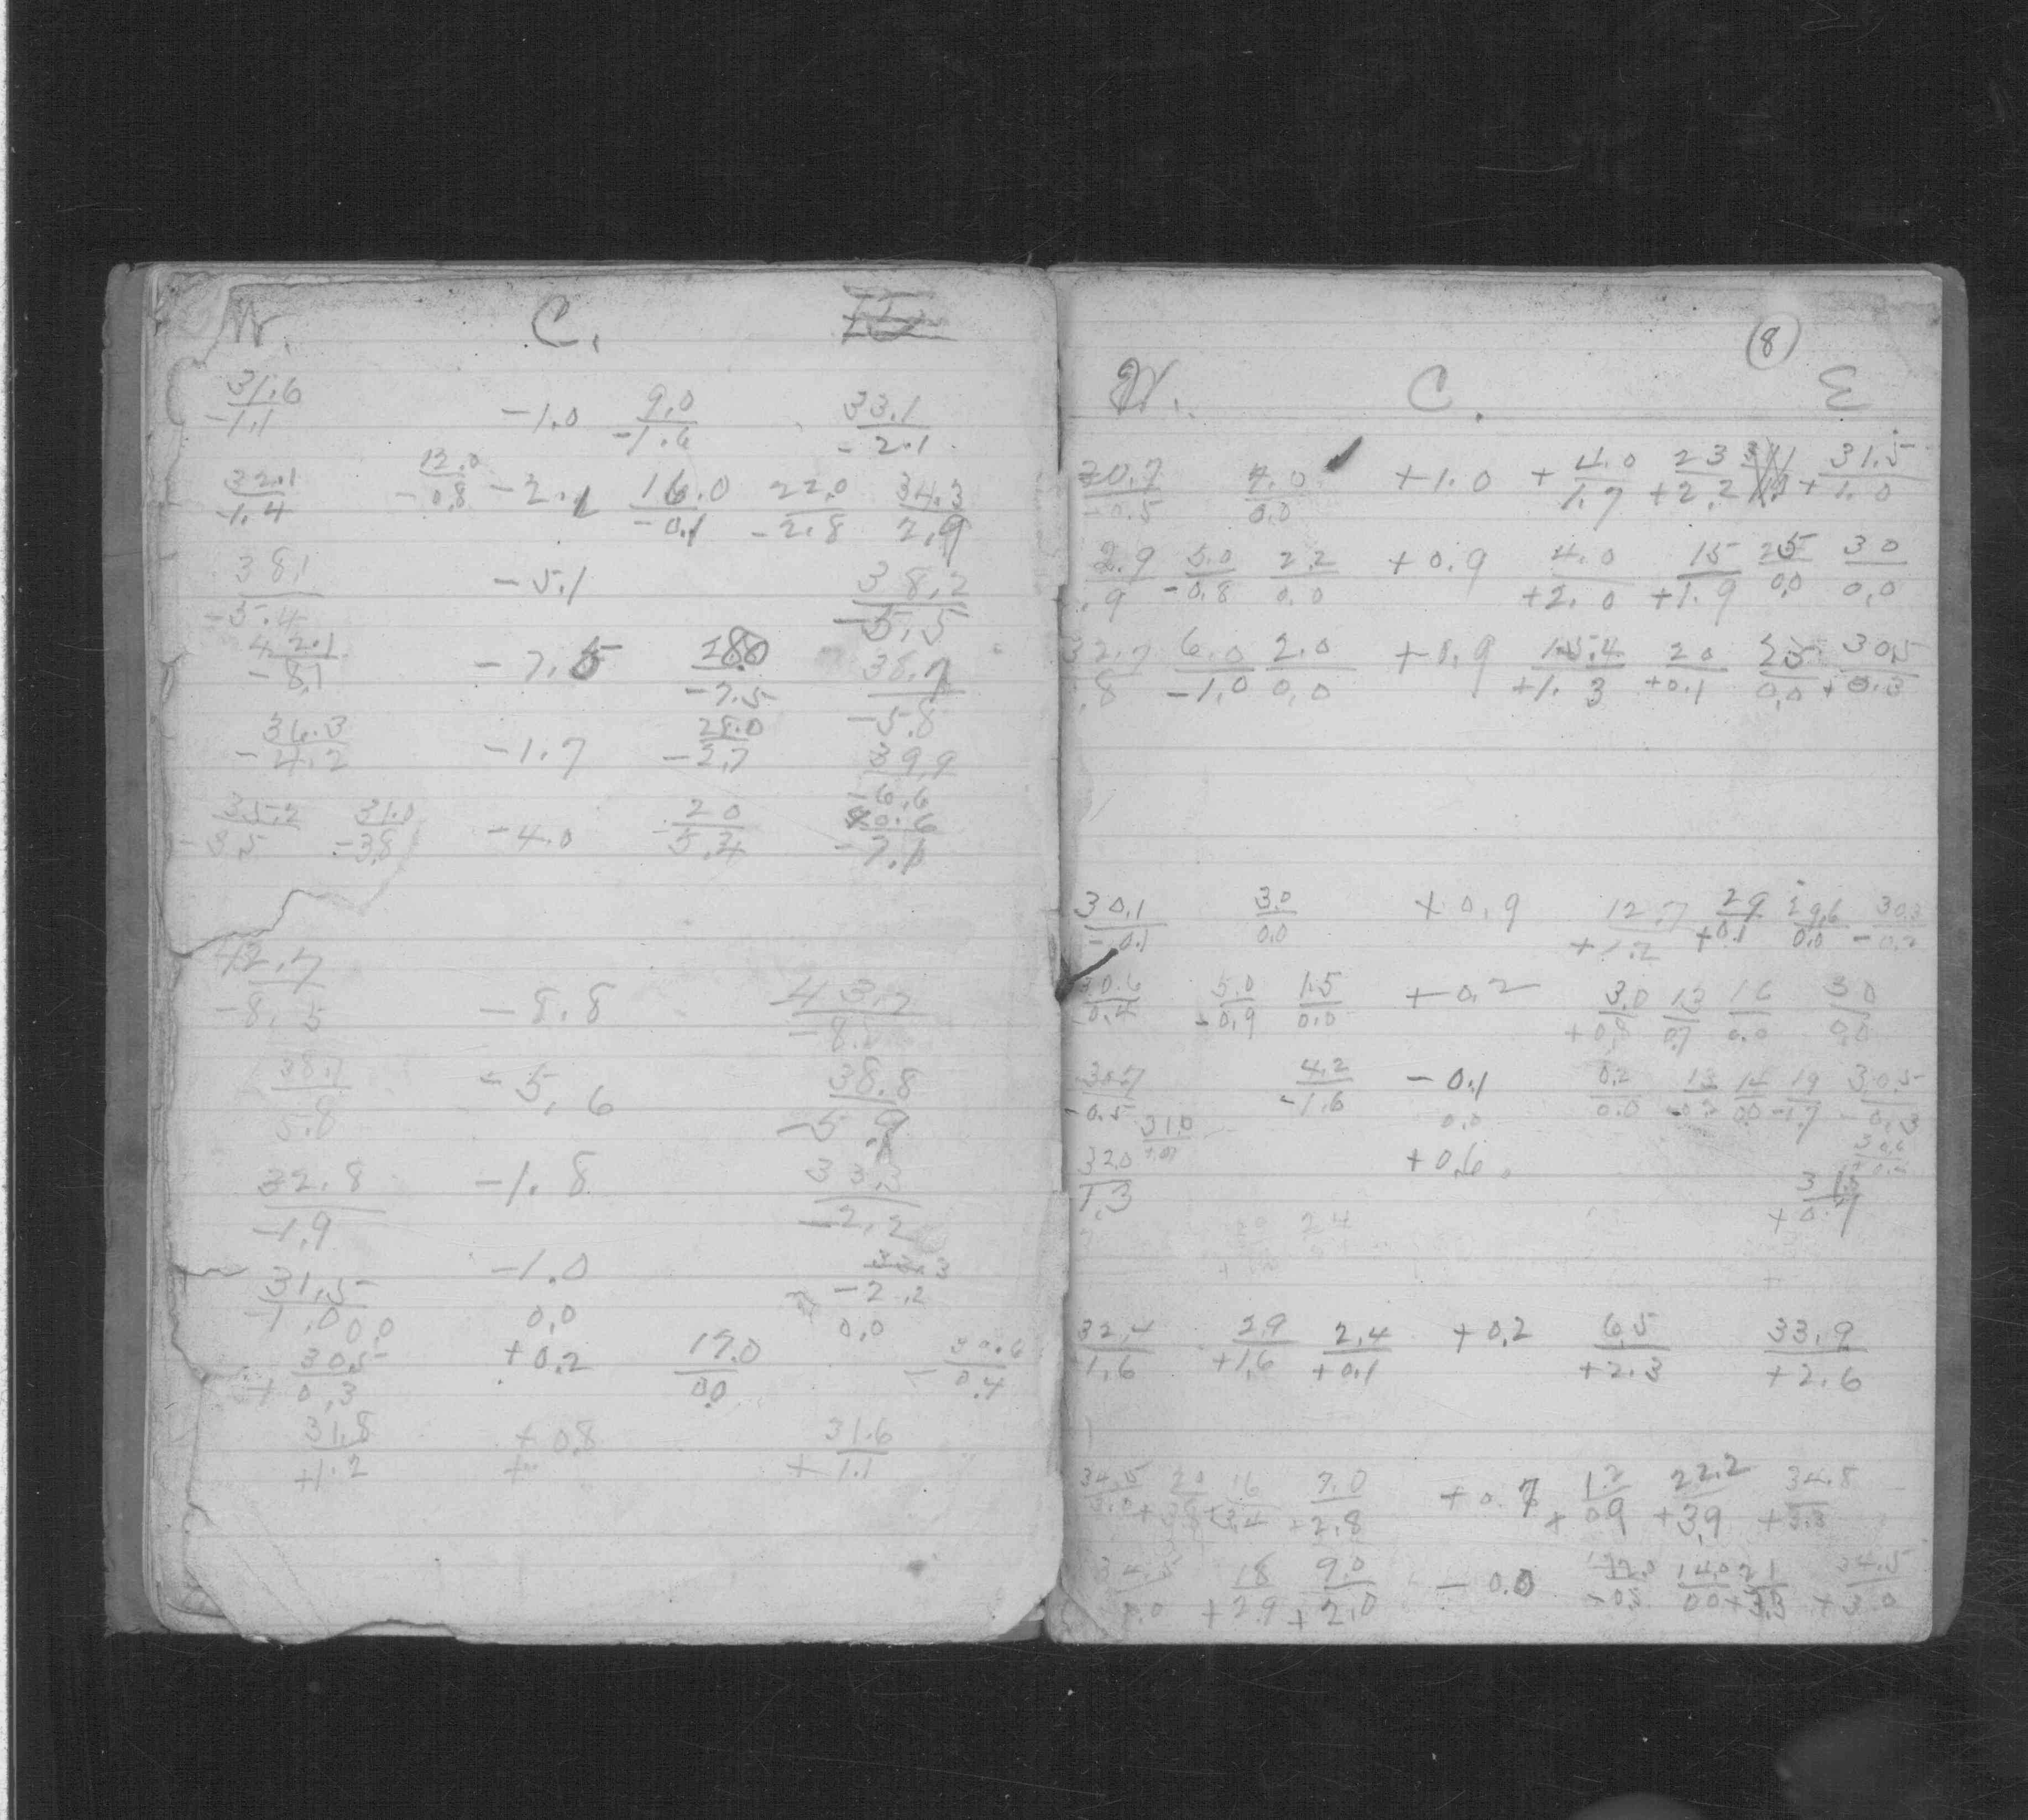 W. C.
31.6 / -1.1 -1.0 9.0 / -1.6 33.1 / -2.1
32.1 / -1.4 12.0 / -0.8 -2.1 16.0 / -0.1 22.0 / -2.8 34.3 / 2.9
38.1 / -5.4 -5.1 38.2 / -5.5
42.1 / -8.1 -7.5 28.0 / -7.5 38.7 / -5.8
36.3 / -4.2 -1.7 28.0 / -2.7 39.9
16.6
35.2 / -3.5 31.0 / -3.8 -4.0 20 / -5.4 40.6 / -7.1
42.7 / -8.5 -8.8 43.7
38.7 / 5.8 -5.6 38.8 / -5.9
32.8 / -1.9 -1.8 33.3 / -2.2
31.5 / -1.0 -1.0 33.3 / -2.2
0.0 0.0 0.0
30.5 / + 0.3 +0.2 17.0 / 0.0 30.6 / - 0.4
31.8 / +1.2 +0.8 31.6 / + 1.1
8
W. C. E
30.7 / -0.5 7.0 / 0.0 +1.0 4.0 / + 1.7 23 / +2.2 31.5 / + 1.0
2.9 / .9 5.0 / -0.8 2.2 / 0.0 +0.9 4.0 / +2.0 15 / +1.9 25 / 0.0 30 / 0.0
32.7 / .8 6.0 / -1.0 2.0 / 0.0 +0.9 15.4 / +1.3 20 / +0.1 25 / 0.0 30.5 / + 0.3
30.1 / -0.1 3.0 / 0.0 +0.9 12.7 / +1.2 29 / +0.1 29.6 / 0.0 30.3 / -0.2
30.6 / 0.4 5.0 / -0.9 1.5 / 0.0 +0.2 3.0 / +0.8 13 / 0.7 16 / 0.0 30 / 0.0
30.7 / -0.5 4.2 / -1.6 -0.1 0.2 / 0.0 14 / 0.0 19 / -1.7 30.5 / - 0.3
31.0 0.0
32.0 / 1.3 +0.6
24
32.4 / 1.6 2.9 / +1.6 2.4 / +0.1 +0.2 6.5 / +2.3 33.9 / +2.6
34.5 / 3.0 20 16 / +3.4 7.0 / +2.8 +0.7 1.2 / + 0.9 22.2 / +3.9 34.8 / +3.3
34.5 / 3.0 18 / +2.9 9.0 / +2.0 -0.0 14.0 / 0.0 21 / +3.3 34.5 / +3.0